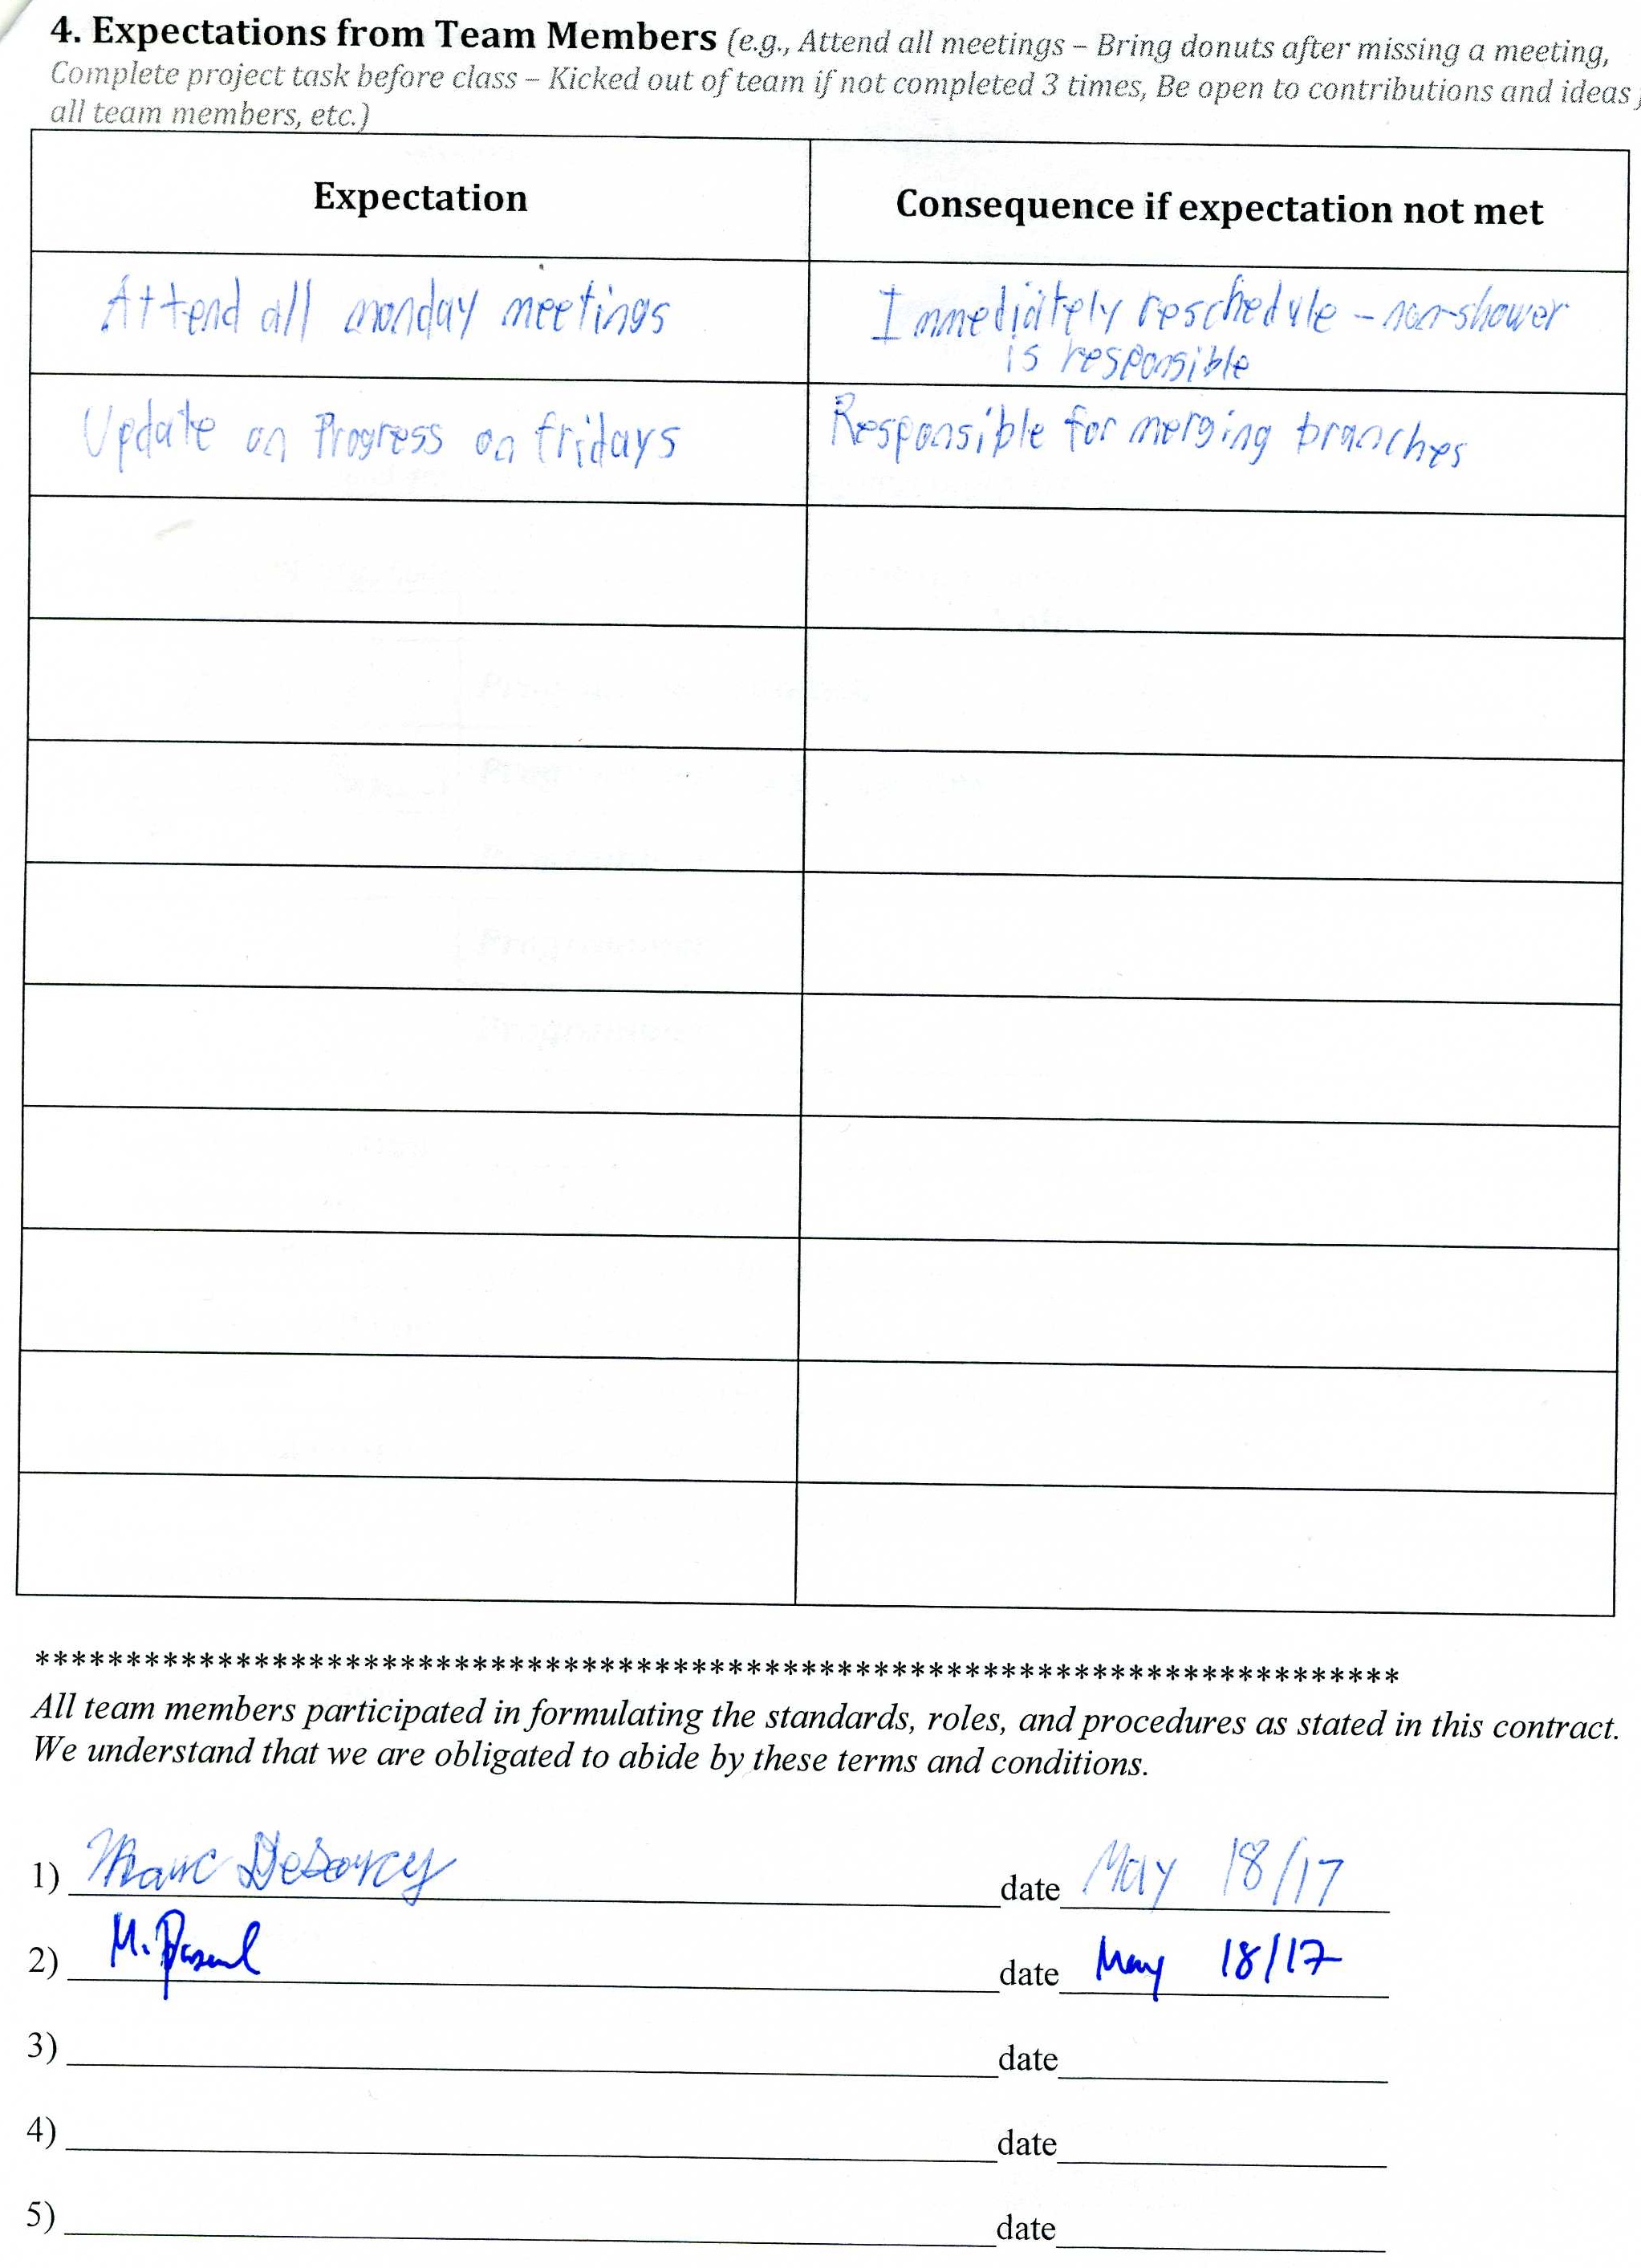 4. Expectations from Team Members (e.g., Attend all meetings – Bring donuts after missing a meeting,
Complete project task before class – Kicked out of team if not completed 3 times, Be open to contributions and ideas
all team members, etc.)
Expectation Consequence if expectation not met
Attend all monday meetings Immediately reschedule – non-shower
is responsible
Update on Progress on fridays Responsible for merging branches
***************************************************************************
All team members participated in formulating the standards, roles, and procedures as stated in this contract.
We understand that we are obligated to abide by these terms and conditions.
1) Marc date May 18/17
2) M. date May 18/17
3) date
4) date
5) date